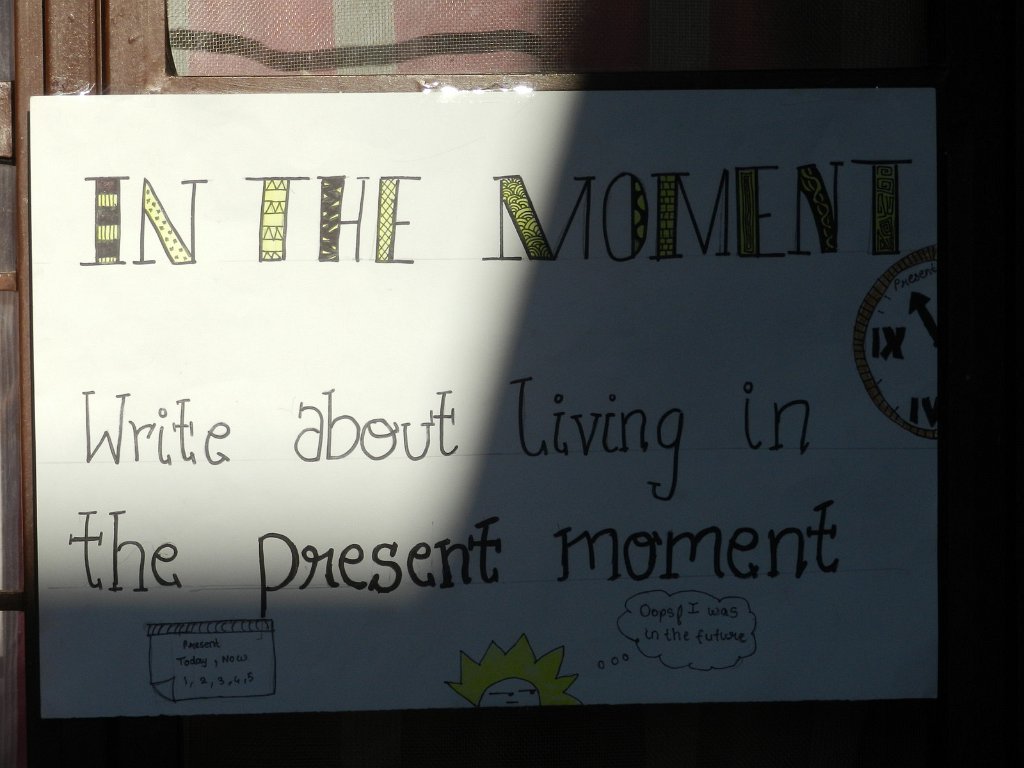 IN THE MOMENT
Present
IX
IV
Write about living in
the present moment
Present
Today, Now
1, 2, 3, 4, 5
Oops! I was
in the future